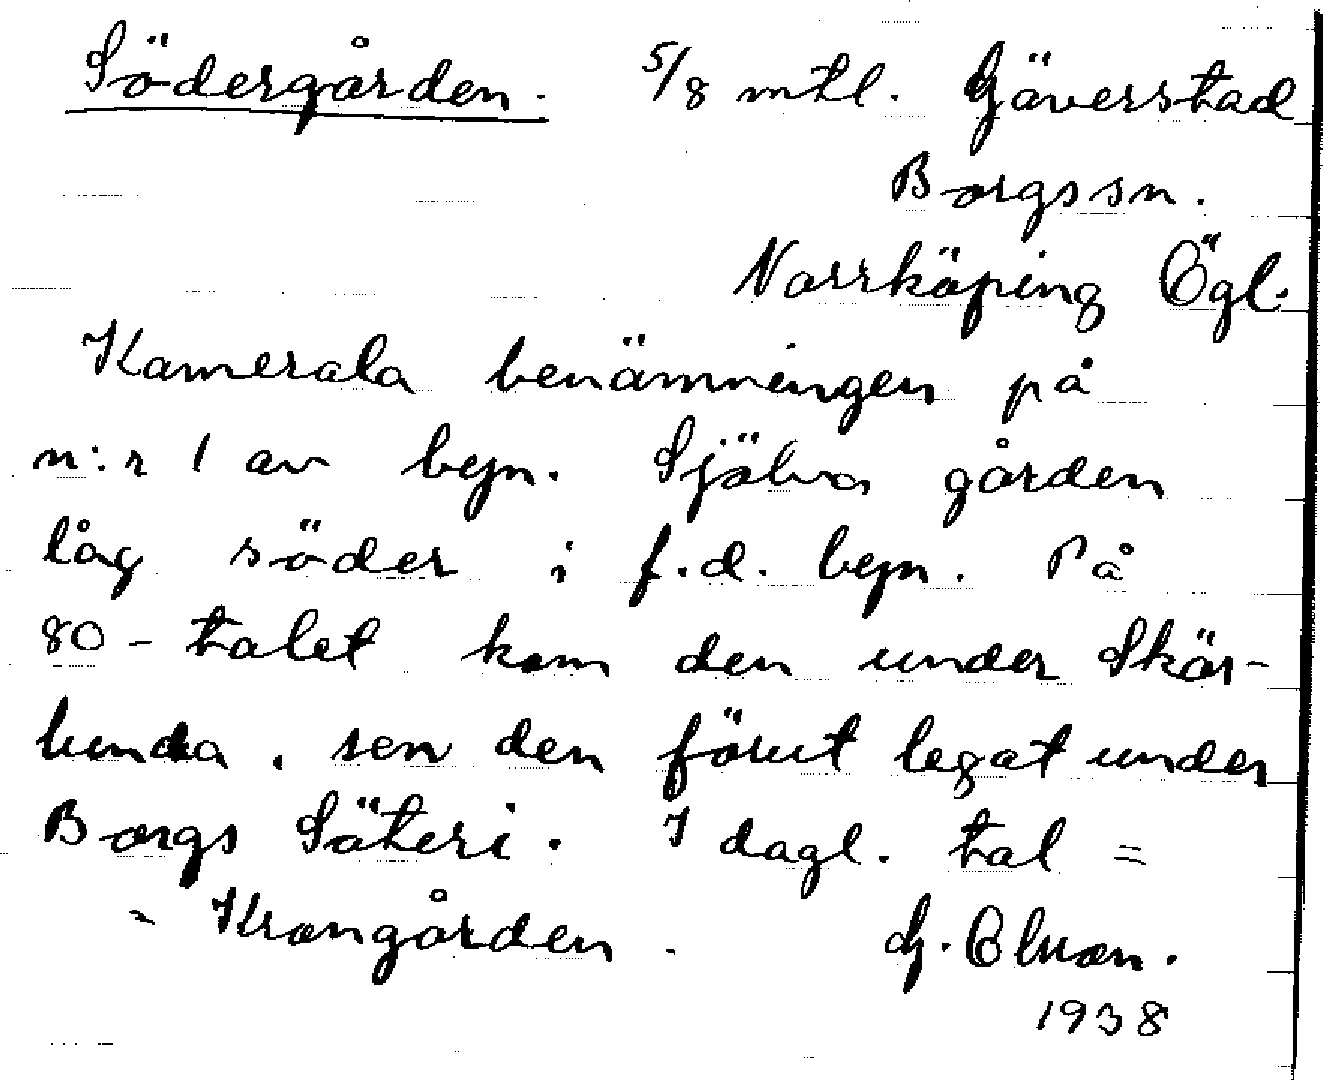 Södergården. 5/8 mtl. Gäverstad
Borgs sn.
Norrköping Ögl.
Kamerala benämningen på
n:r 1 av byn. Själva gården
låg söder i f.d. byn. På
80-talet kom den under Skär-
lunda, sen den förut legat under
Borgs Säteri. I dagl. tal =
= Krongården.
1938